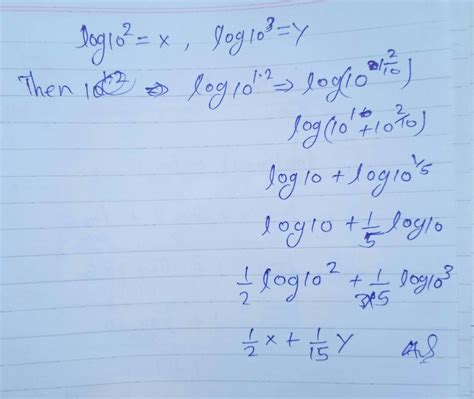 log10² = x , log10³ = y
Then ⇒ log10^1.2 ⇒ log(10^1 2/10)
log(10^1 + 10^2/10)
log10 + log10^1/5
log10 + 1/5 log10
1/2 log10² + 1/3×5 log10³
1/2 x + 1/15 y AS